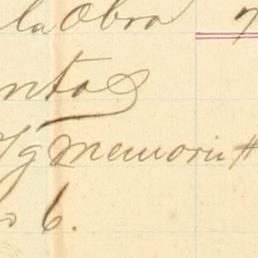 la Obra
ntas
Yg memoria #
o 6.